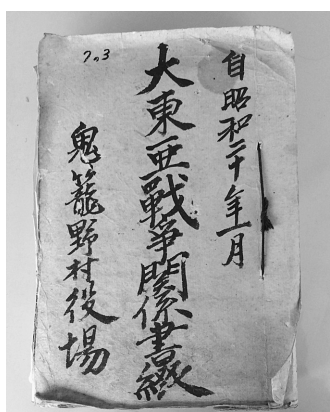 自昭和二十年一月
大東亜戰爭関係書綴
鬼籠野村役場
7.3